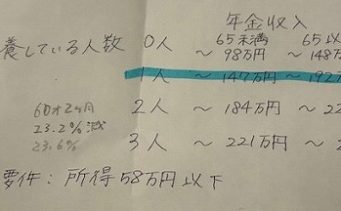 年金収入
65未満 65以
養している人数 0人 ~98万円 ~148
1人 ~147万円 ~192
60才2ヶ月 2人 ~184万円 ~22
23.2%減
23.6% 3人 ~221万円 ~2
要件:所得58万円以下